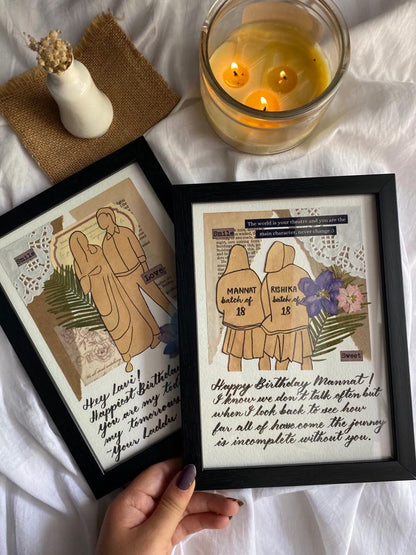 Smile
Love
Hey Lavi!
Happiest Birthday
You are my tod
my tomorrow
~ Your Laddu
The world is your theatre and you are the
main character, never change :)
Smile
MANNAT
batch of
18
RISHIKA
batch of
18
Sweet
Happy Birthday Mannat!
I know we don't talk often but
when I look back to see how
far all of have come the journey
is incomplete without you.